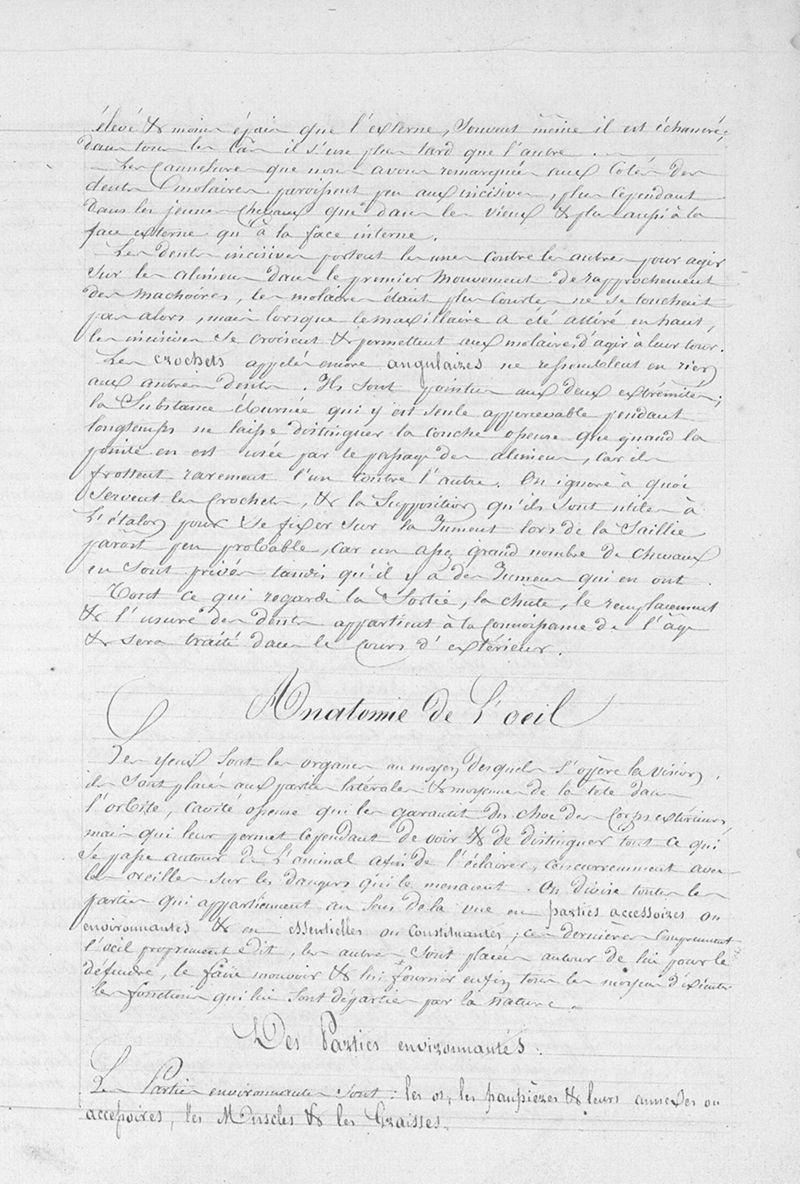 élevé & moins épais que l'externe, Souvent même il est échancré;
dans tous les cas il s'use plus tard que l'autre.
Les Cannelures que nous avons remarquées aux Cotés des
dents molaires paroissent peu aux incisives, plus cependant
dans les jeunes Chevaux que dans les vieux & plus aussi à la
face externe qu'à la face interne.
Les dents incisives portent les unes contre les autres pour agir
sur les alimens dans le premier mouvement de rapprochement
des machoires, les molaires étant plus courtes ne se touchent
pas alors, mais lorsque le maxillaire a été attiré en haut,
les incisives se croisent & permettent aux molaires d'agir à leur tour.
Les crochets appelés encore angulaires ne ressemblent en rien
aux autres dents. Ils sont pointus aux deux extrémités;
la Substance éburnée qui y est seule appercevable pendant
longtemps ne laisse distinguer la couche osseuse que quand la
pointe en est usée par le passage des alimens, car ils
frottent rarement l'un contre l'autre. On ignore à quoi
servent les Crochets, & la Supposition qu'ils sont utiles à
L'étalon pour se fixer sur la Jument lors de la Saillie
paroit peu probable, car un assez grand nombre de chevaux
en sont privés tandis qu'il y a des Jumens qui en ont.
Tout ce qui regarde la Sortie, la chute, le remplacement
& l'usure des dents appartient à la Connoissance de l'âge
& sera traité dans le Cours d'extérieur.
Anatomie de L'oeil
Les yeux sont les organes au moyen desquels s'opère la vision,
ils sont placés aux parties latérales & moyennes de la tête dans
l'orbite, cavité osseuse qui les garantit du choc des Corps extérieurs,
mais qui leur permet cependant de voir & de distinguer tout ce qui
se passe autour de L'animal afin de l'éclairer, concurremment avec
les oreilles sur les dangers qui le menacent. On divise toutes les
parties qui appartiennent au Sens de la vue en parties accessoires ou
environnantes & en essentielles ou constituantes; ces dernières comprennent
l'oeil proprement dit, les autres sont placées autour de lui pour le
défendre, le faire mouvoir & lui fournir enfin tous les moyens d'exécuter
les fonctions qui lui sont départies par la nature.
Des Parties environnantes.
Les Parties environnantes sont: les os, les paupières & leurs annexes ou
accessoires, les Muscles & les Graisses.